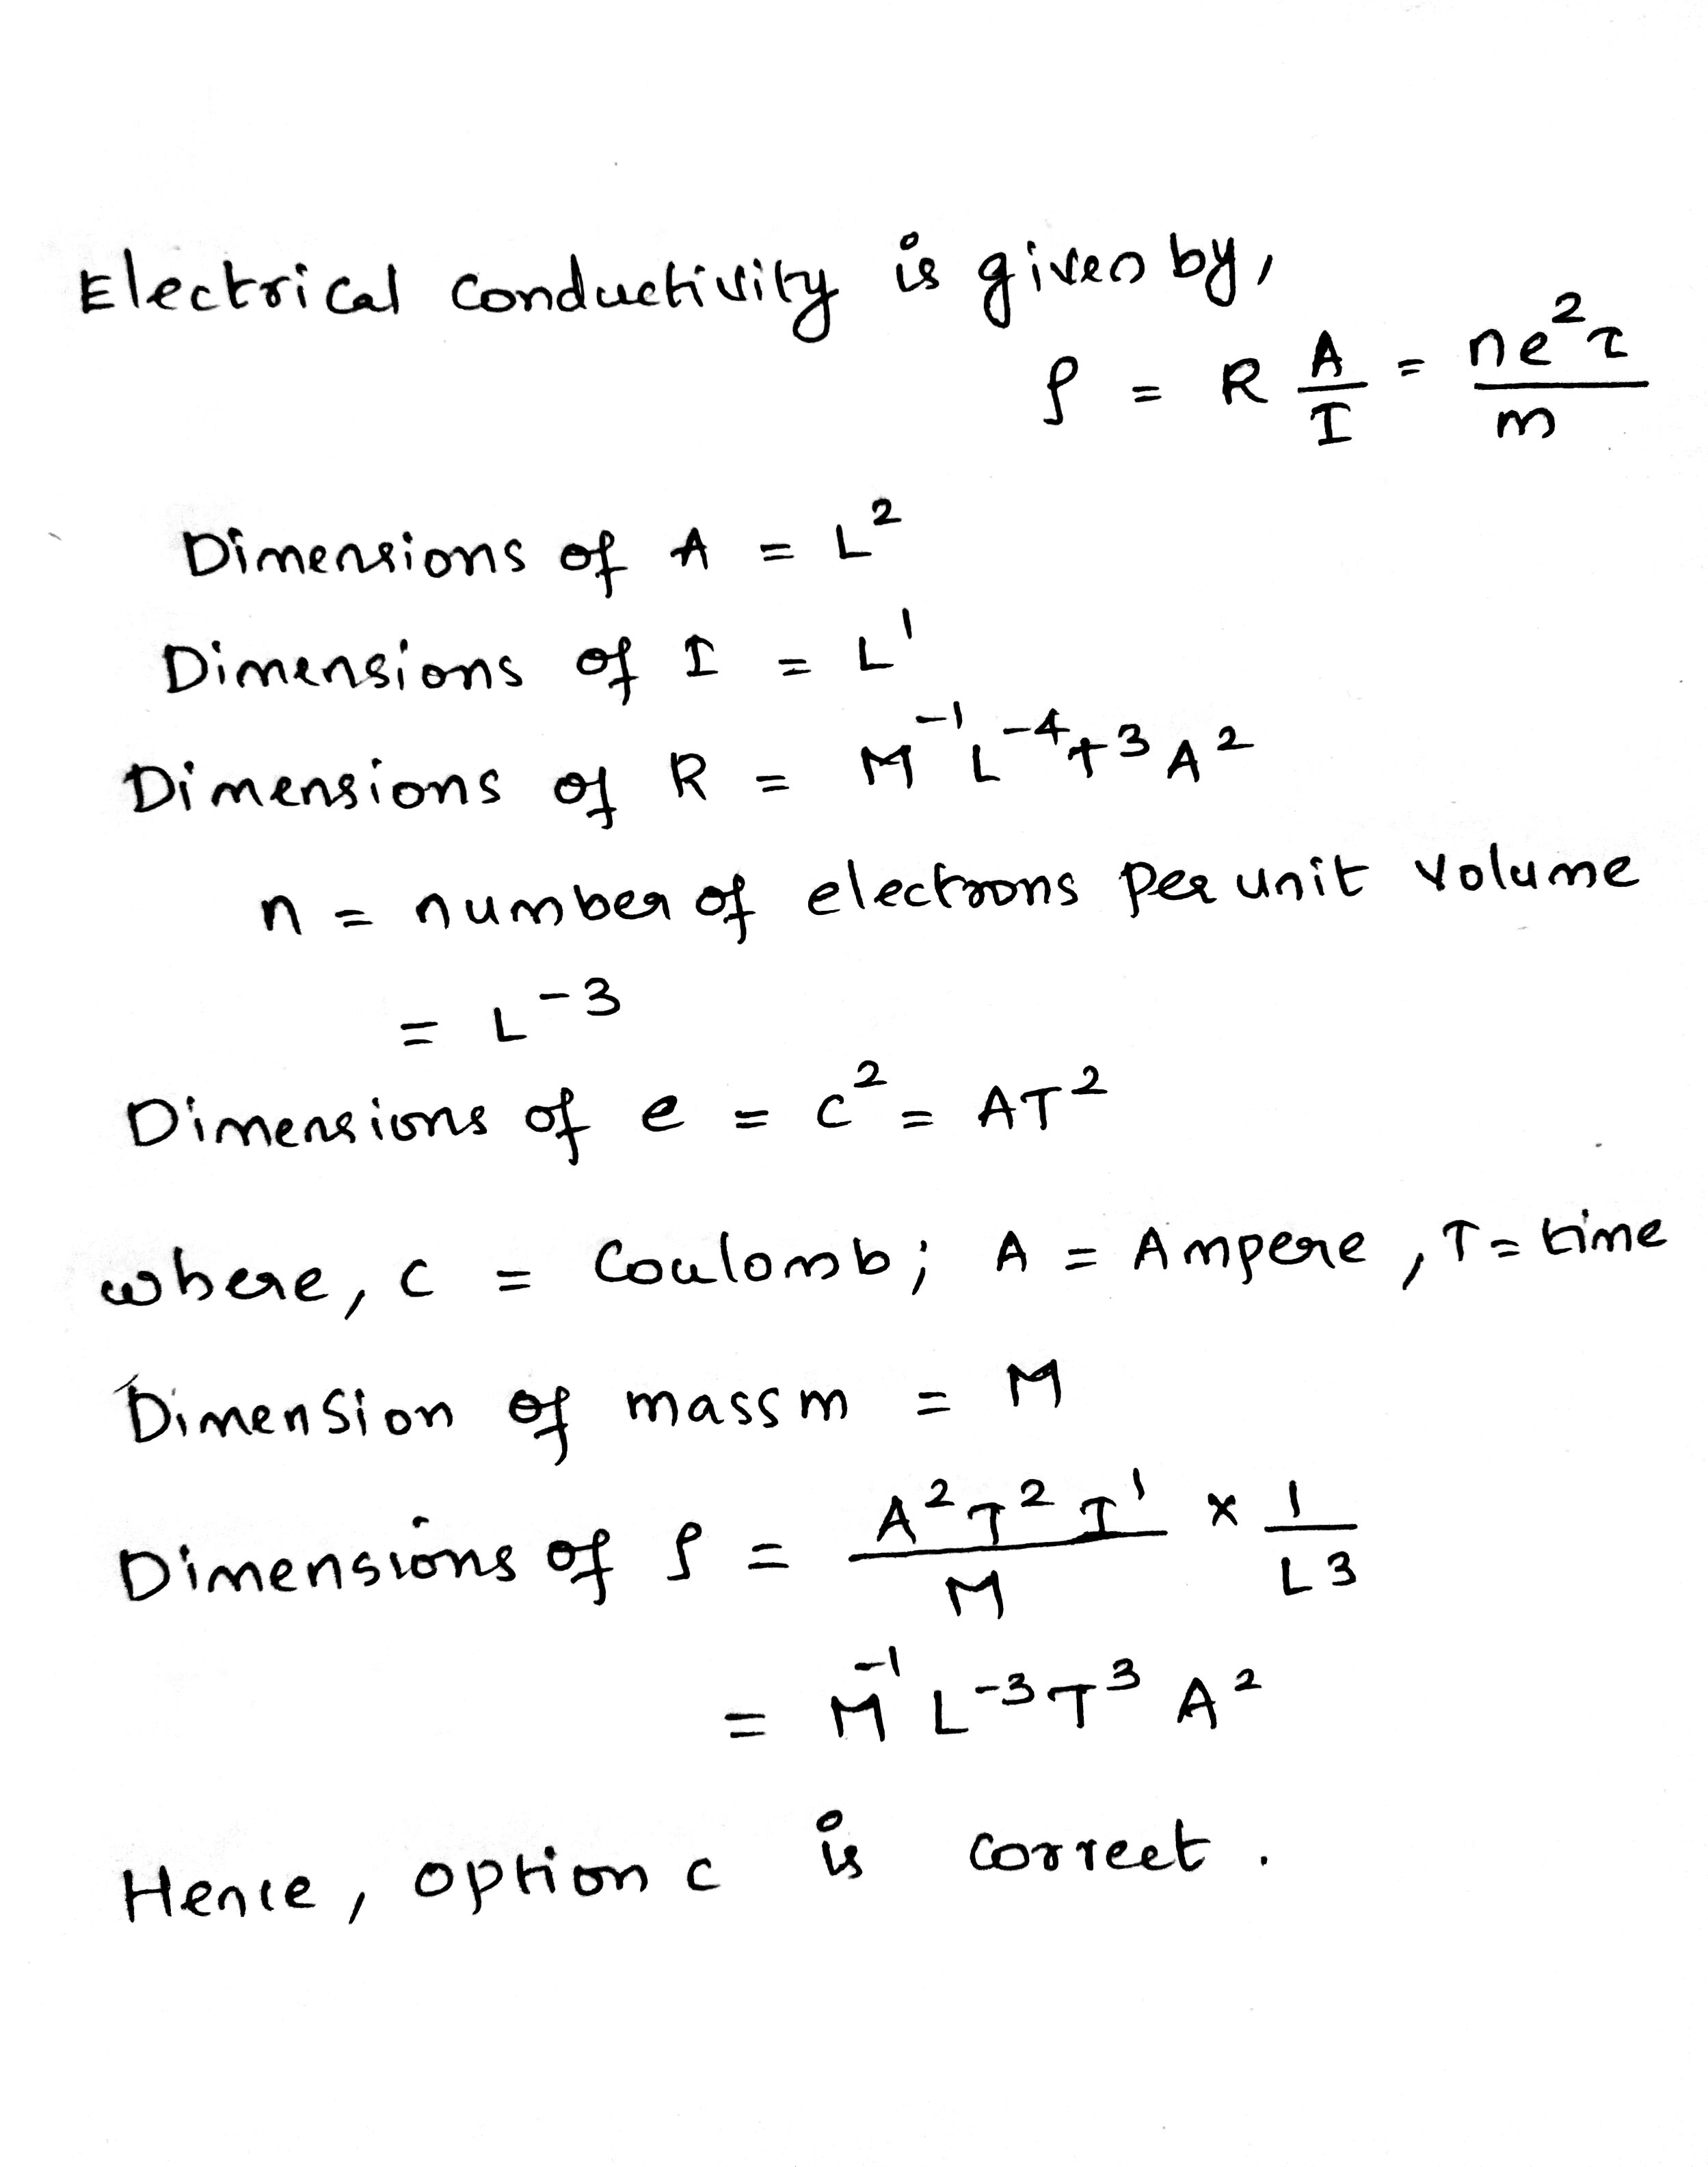 Electrical conductivity is given by,
ρ = R A/I = ne²τ/m
Dimensions of A = L²
Dimensions of I = L¹
Dimensions of R = M⁻¹L⁻⁴T³A²
n = number of electrons per unit volume
= L⁻³
Dimensions of e = c² = AT²
where, c = Coulomb; A = Ampere, T = time
Dimension of mass m = M
Dimensions of ρ = A²T²T¹/M × 1/L3
= M⁻¹L⁻³T³A²
Hence, option c is correct.